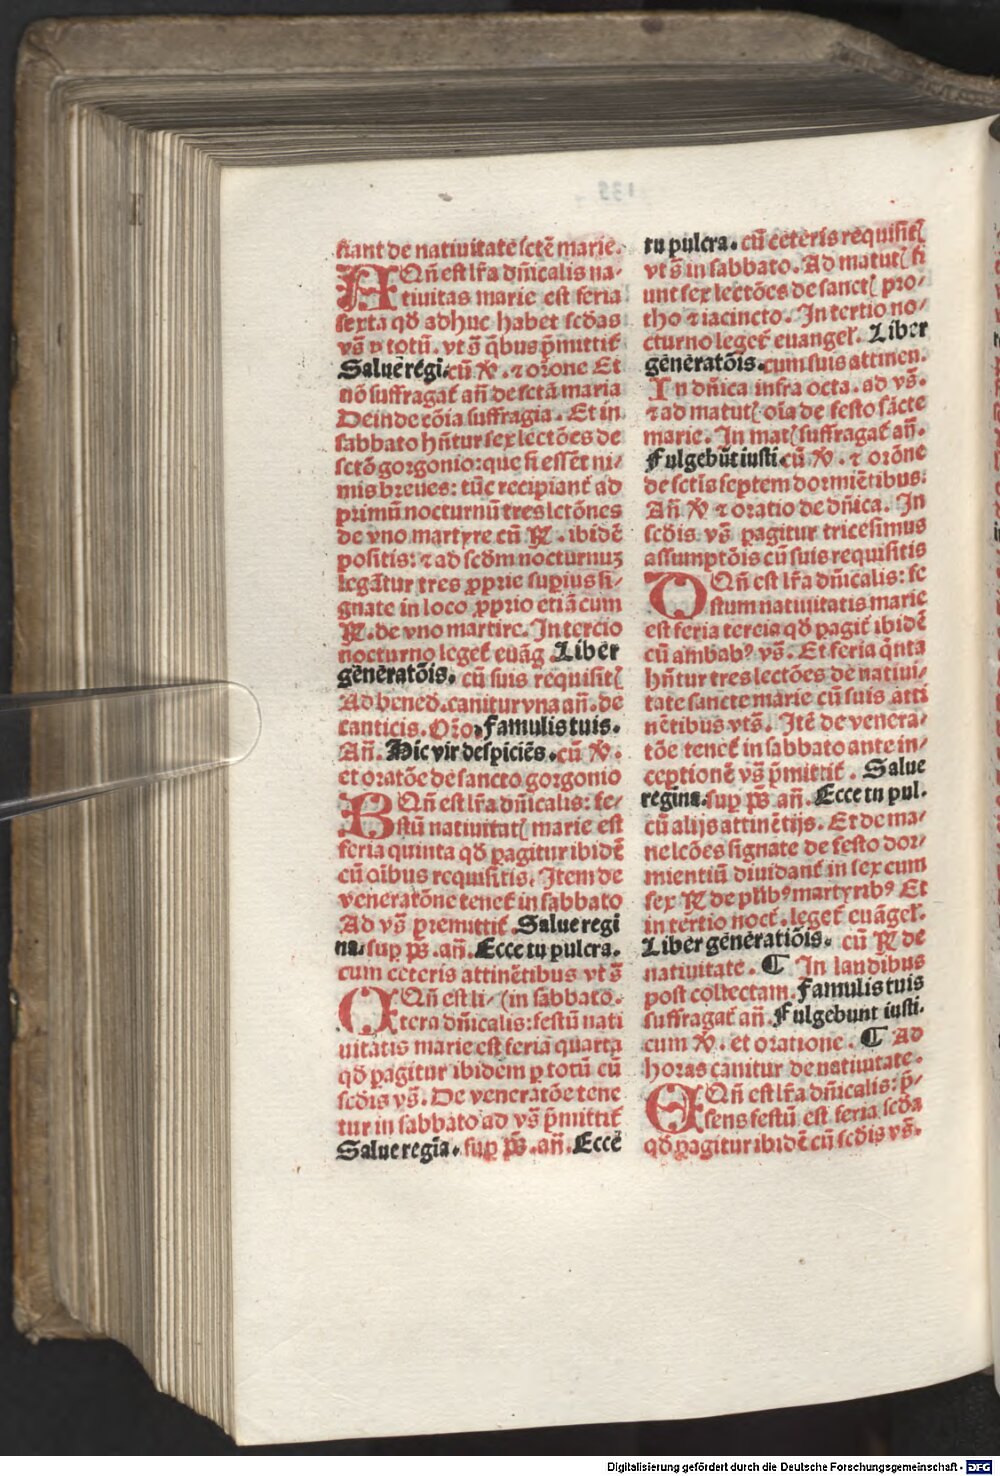 fiant de natiuitate sctē marie.
AQn̄ est lr̄a dn̄icalis na-
tiuitas marie est feria
sexta qd̄ adhuc habet scd̄as
vs̄ p totū. vt s̄ q̄bus p̄mittit᷑
Salue regi. cū ℣. ⁊ orōne Et
nō suffragat᷑ an̄ de sctā maria
Deinde cōia suffragia. Et in
sabbato hn̄tur sex lectōes de
sctō gorgonio: que si essēt ni-
mis breues: tūc recipiant᷑ ad
primū nocturnū tres lctōnes
de vno martyre cū ℟. ibidē
positis: ⁊ ad scd̄m nocturnuꝫ
legātur tres ꝓprie supius si-
gnate in loco ꝓprio etiā cum
℟. de vno martire. In tercio
nocturno leget᷑ euāg Liber
generatōis. cū suis requisit[
Ad bened. canitur vna an̄. de
canticis. Orō. Famulis tuis.
An̄. Hic vir despiciēs. cū ℣.
et oratōe de sancto gorgonio
BQn̄ est lr̄a dn̄icalis: fe-
stū natiuitat[ marie est
feria quinta qd̄ pagitur ibidē
cū oībus requisitis. Item de
veneratōne tenet᷑ in sabbato
Ad vs̄ premittit᷑. Salue regi
na. sup ps̄. an̄. Ecce tu pulcra.
cum ceteris attinētibus vt s̄
CQn̄ est li- (in sabbato.
tera dn̄icalis: festū nati
uitatis marie est feria quarta
qd̄ pagitur ibidem p totū cū
scd̄is vs̄. De veneratōe tene
tur in sabbato ad vs̄ p̄mittit᷑
Salue regīa. sup ps̄. an̄. Ecce
tu pulcra. cū ceteris requisit[
vt s̄ in sabbato. Ad matut[ fi
unt sex lectōes de sanct[ pro-
tho ⁊ iacincto. In tertio no-
cturno leget᷑ euangeł. Liber
generatōis. cum suis attinen.
In dn̄ica infra octa. ad vs̄.
⁊ ad matut[ oīa de festo sācte
marie. In mat[ suffragat᷑ an̄.
Fulgebūt iusti. cū ℣. ⁊ orōne
de sctīs septem dormiētibus.
An̄ ℣ ⁊ oratio de dn̄ica. In
scd̄is vs̄ pagitur tricesimus
assumptōis cū suis requisitis
DQn̄ est lr̄a dn̄icalis: fe
stum natiuitatis marie
est feria tercia qd̄ pagit᷑ ibidē
cū ambabꝰ vs̄. Et feria q̄nta
hn̄tur tres lectōes de natiui-
tate sancte marie cū suis atti
nētibus vt s̄. Itē de venera-
tōe tenet᷑ in sabbato ante in-
ceptionē vs̄ p̄mittit᷑. Salue
regina. sup ps̄ an̄. Ecce tu pul.
cū alijs attinētijs. Et de ma-
ne lcōes signate de festo dor-
mientiū diuidant᷑ in sex cum
sex ℟ de plībꝰ martyribꝰ Et
in tertio noct᷑. leget᷑ euāgeł.
Liber generatiōis. cū ℟ de
natiuitate. ¶ In laudibus
post collectam. Famulis tuis
suffragat᷑ an̄. Fulgebunt iusti.
cum ℣. et oratione. ¶ Ad
horas canitur de natiuitate.
EQn̄ est lr̄a dn̄icalis: p̄-
sens festū est feria scd̄a
qd̄ pagitur ibidē cū scd̄is vs̄.
Digitalisierung gefördert durch die Deutsche Forschungsgemeinschaft - DFG